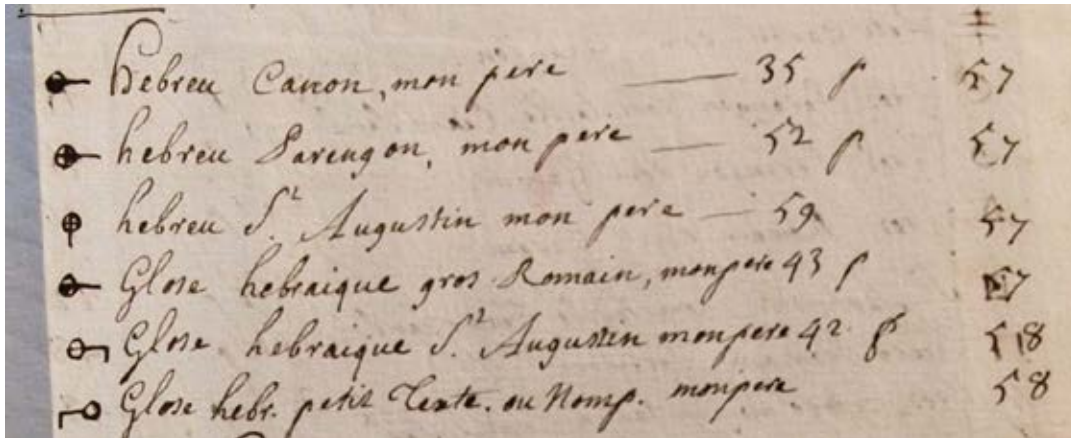 hebreu Canon, mon pere — 35 p 57
hebreu Parengon, mon pere — 52 p 57
hebreu St. Augustin mon pere — 59 57
Glose hebraique gros Romain, mon pere 43 p 57
Glose hebraique St. Augustin mon pere 42 p 58
Glose hebr. petit Texte. ou Nomp. mon pere 58